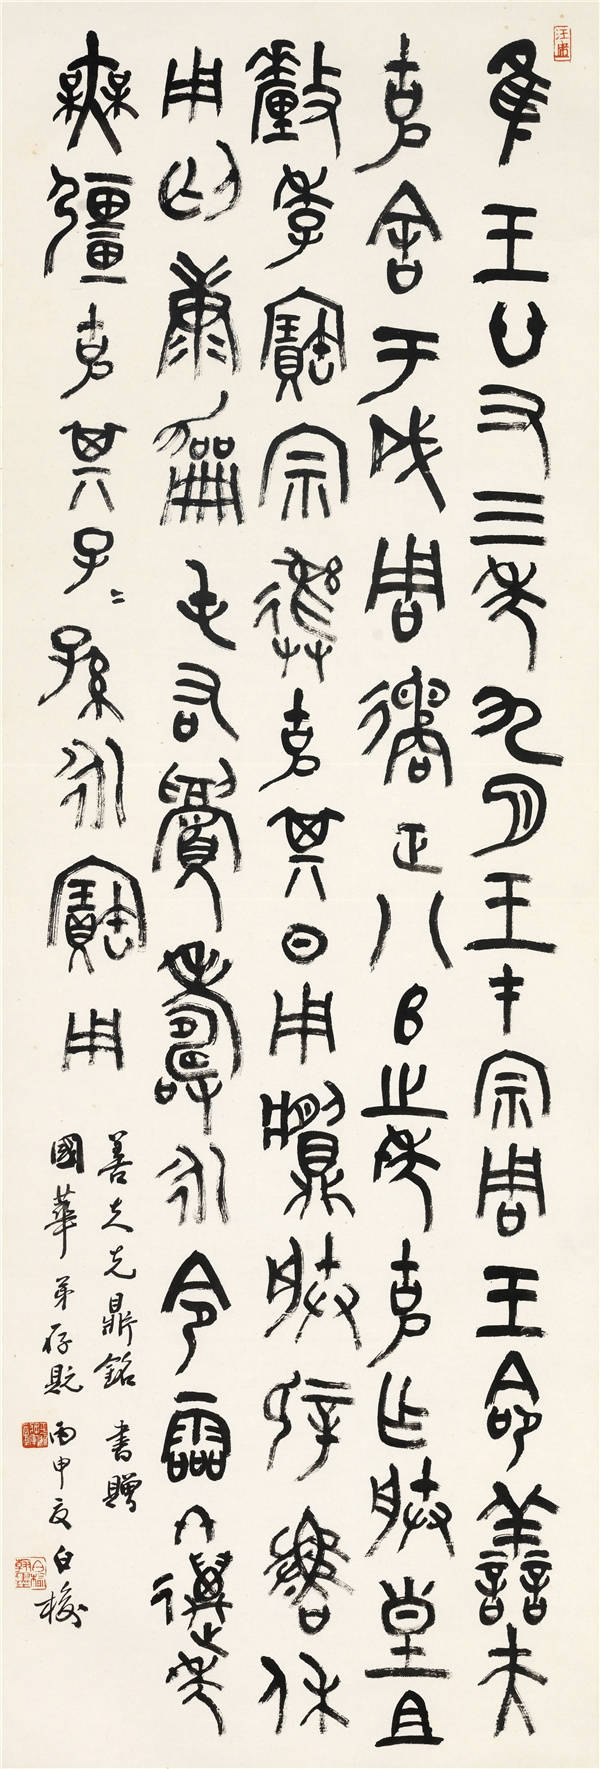 隹王廿又三年九月王才宗周王命善夫
克舍于成周遹正八𠂤之年克乍朕皇且
釐季寶宗彝克其日用𩰬朕辟魯休
用匄康勵屯右眉壽永令霝冬邁年
無疆克其子二孫永寶用
善夫克鼎銘 書贈
國華弟存 丙申夏